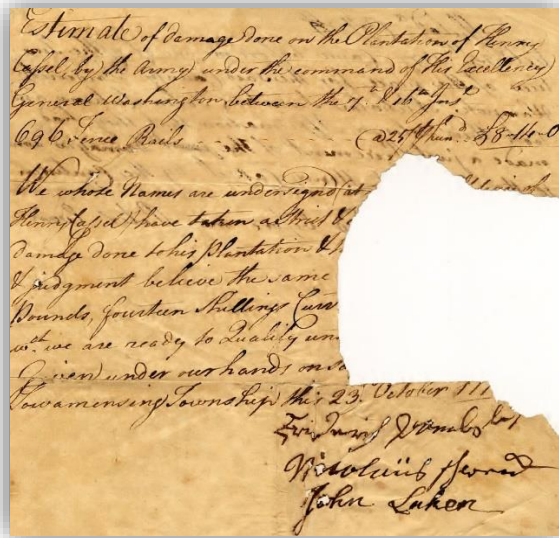 Estimate of damage done on the Plantation of Henry
Cassel, by the Army under the command of His Excellency
General Washington between the 7th & 16th Inst
696 Fence Rails @ 25/ £8-14-0
We whose Names are undersignd (at
Henry Cassel) have taken a
damage done to his plantation &
& judgment believe the same
Pounds, fourteen Shillings Curr
wch we are ready to Qualify un
Given under our hands on
Towamensing Township this 23. October 177
John Luken